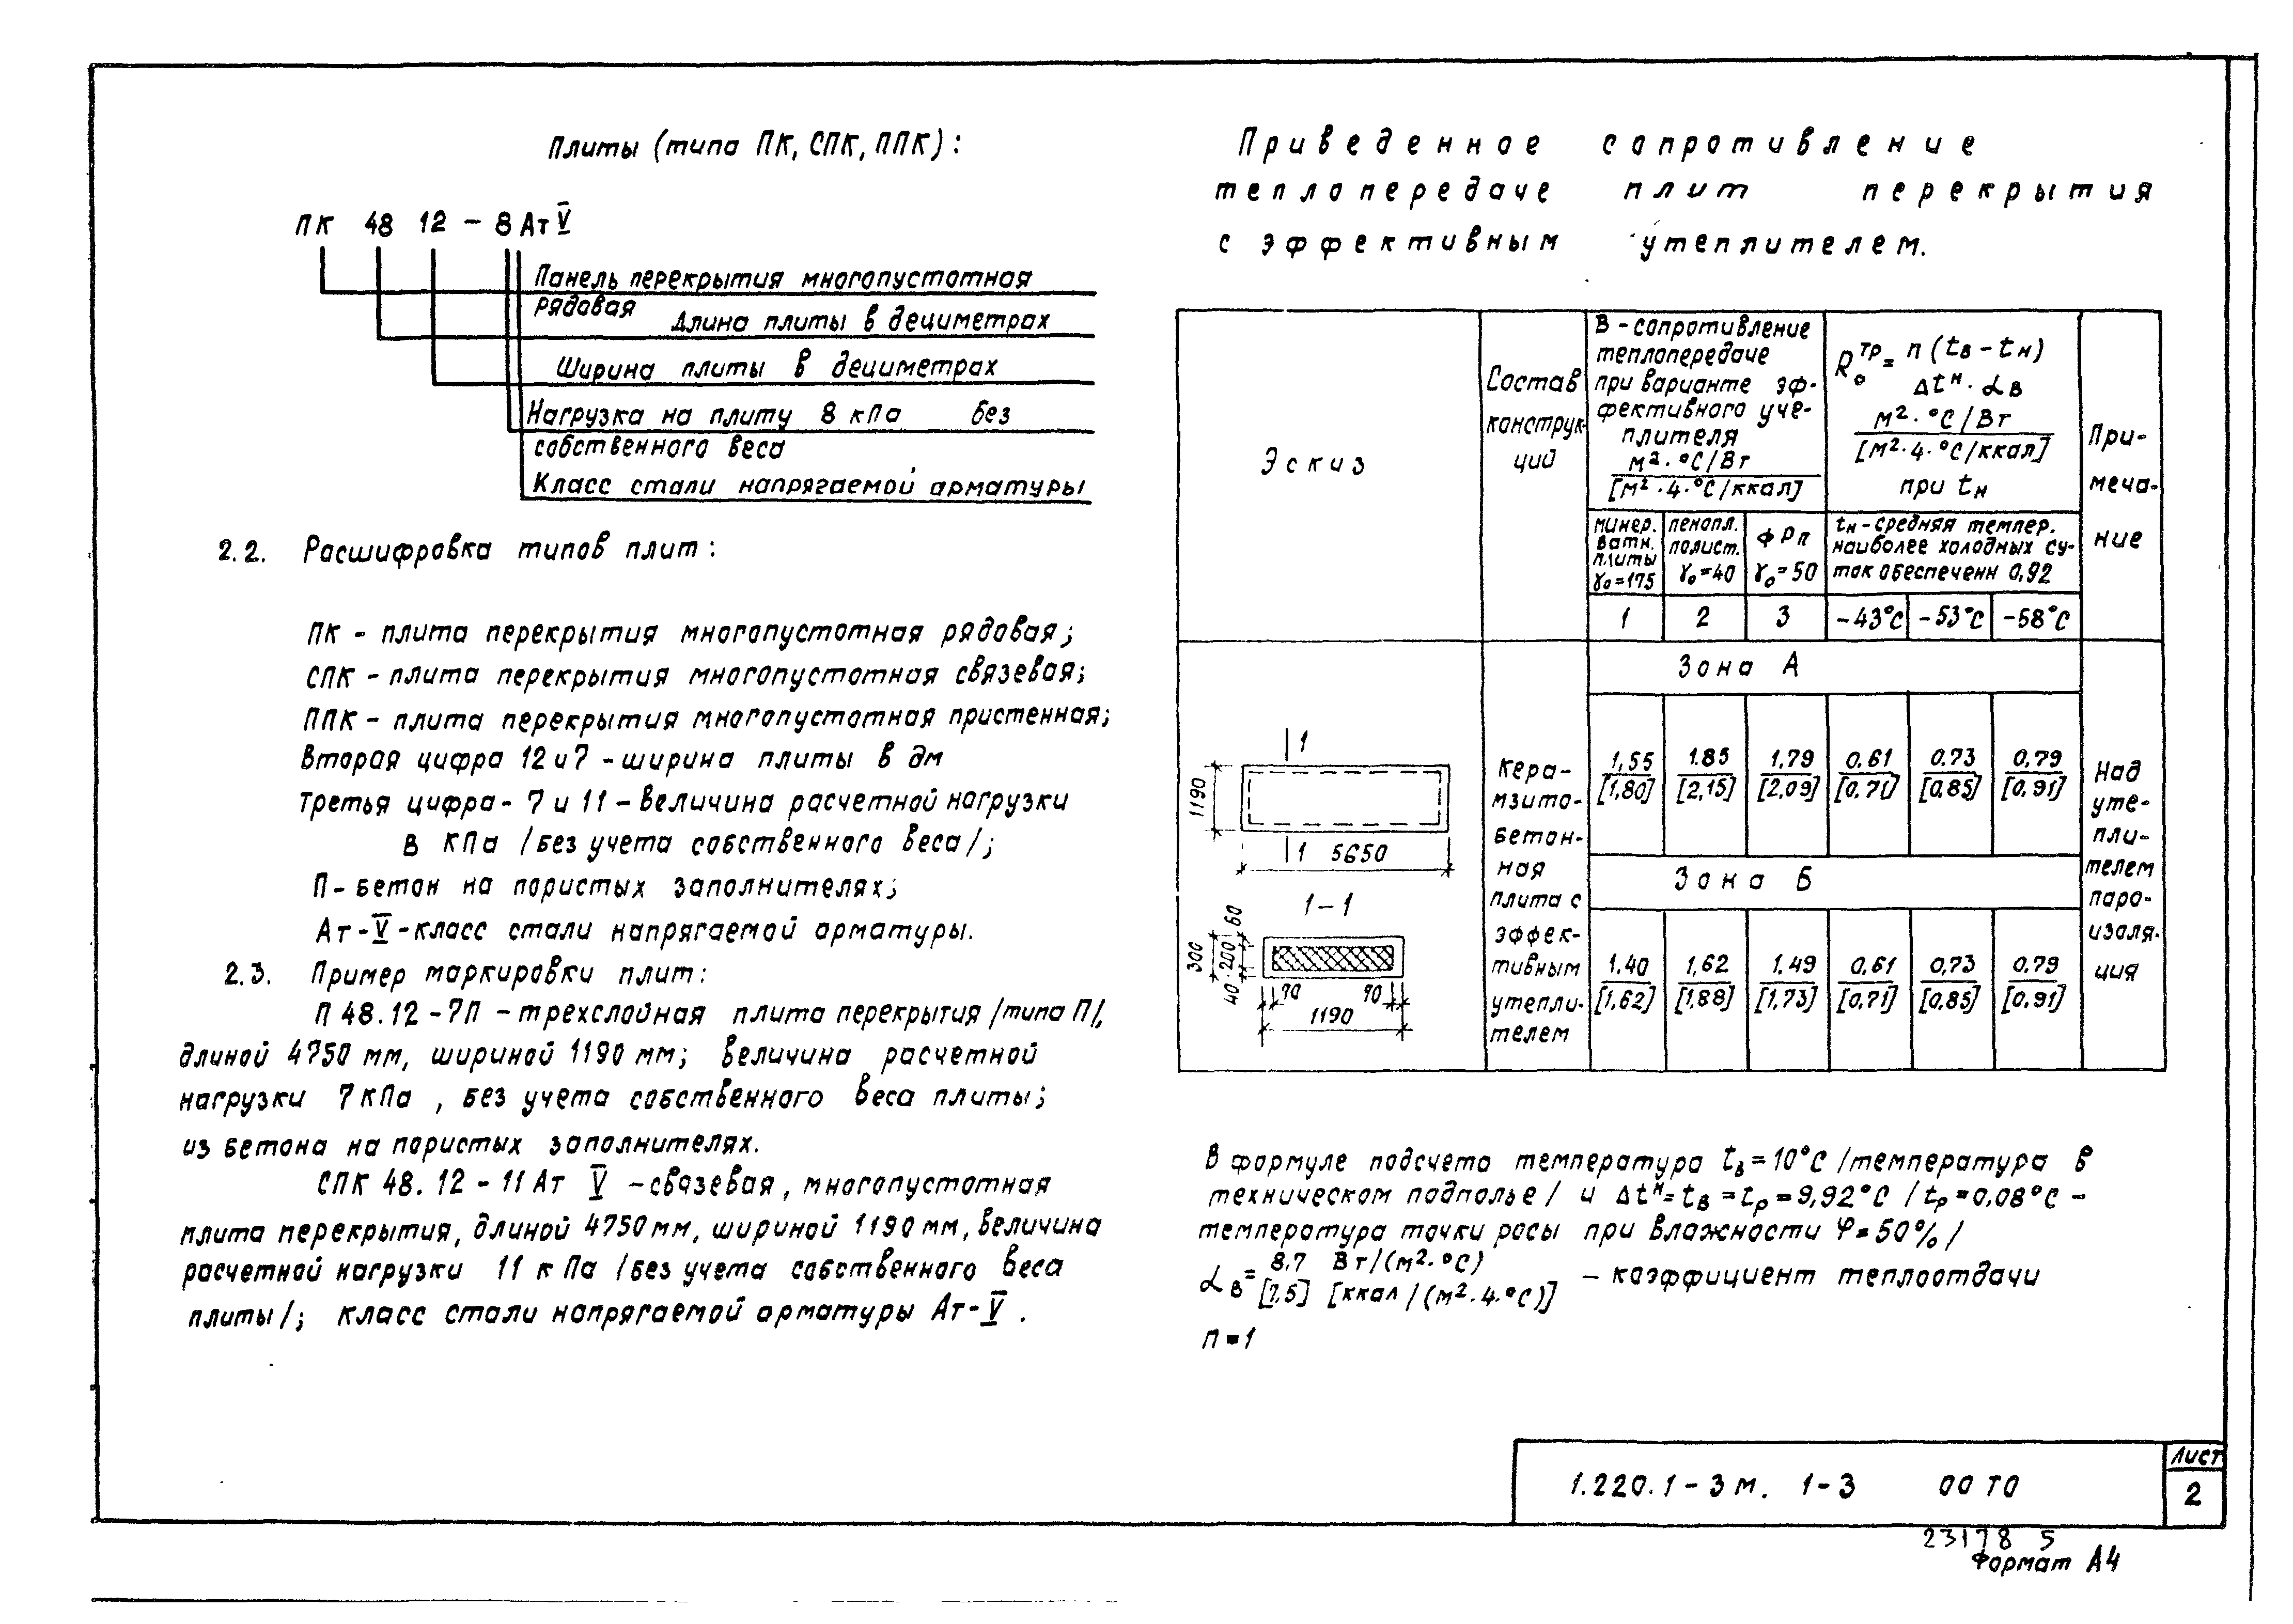 Плиты (типа ПК, СПК, ППК):
ПК 48 12 - 8 Ат V
Панель перекрытия многопустотная
рядовая
Длина плиты в дециметрах
Ширина плиты в дециметрах
Нагрузка на плиту 8 кПа без
собственного веса
Класс стали напрягаемой арматуры
2.2. Расшифровка типов плит:
ПК - плита перекрытия многопустотная рядовая;
СПК - плита перекрытия многопустотная связевая;
ППК - плита перекрытия многопустотная пристенная;
Вторая цифра 12 и 7 - ширина плиты в дм
Третья цифра - 7 и 11 - величина расчетной нагрузки
в кПа /без учета собственного веса/;
П - бетон на пористых заполнителях;
Ат-V - класс стали напрягаемой арматуры.
2.3. Пример маркировки плит:
П 48.12-7П - трехслойная плита перекрытия /типа П/,
длиной 4750 мм, шириной 1190 мм; величина расчетной
нагрузки 7 кПа, без учета собственного веса плиты;
из бетона на пористых заполнителях.
СПК 48.12-11 Ат V - связевая, многопустотная
плита перекрытия, длиной 4750 мм, шириной 1190 мм, величина
расчетной нагрузки 11 кПа /без учета собственного веса
плиты/; класс стали напрягаемой арматуры Ат-V.
Приведенное сопротивление
теплопередаче плит перекрытия
с эффективным утеплителем.
Эскиз
Состав
конструк-
ций
В - сопротивление
теплопередаче
при варианте эф-
фективного уче-
плителя
м²·°С/Вт
[м²·ч·°С/ккал]
R₀ᵀᴾ = n (tв - tн)
Δtᴴ · αв
м²·°С/Вт
[м²·ч·°С/ккал]
при tн
При-
меча-
ние
минер.
ватн.
плиты
γ₀=175
пенопл.
полист.
γ₀=40
ФРП
γ₀=50
tн - средняя темпер.
наиболее холодных су-
ток обеспеченн 0,92
1 2 3 -43°С -53°С -58°С
Зона А
1,55 1.85 1,79 0.61 0.73 0,79
[1,80] [2,15] [2,09] [0.71] [0,85] [0,91]
Зона Б
1.40 1,62 1.49 0,61 0,73 0.79
[1,62] [1,88] [1,73] [0,71] [0,85] [0,91]
1
1190
1 5650
1-1
300
40 200 60
90 90
1190
Кера-
мзито-
бетон-
ная
плита с
эффек-
тивным
утепли-
телем
Над
уте-
пли-
телем
паро-
изоля-
ция
В формуле подсчета температура tв=10°С /температура в
техническом подполье/ и Δtᴴ=tв=tр=9,92°С /tр=0,08°С -
температура точки росы при влажности φ=50%/
αв = 8.7 Вт/(м²·°С)
[7,5] [ккал/(м²·ч·°С)] - коэффициент теплоотдачи
n=1
1.220.1-3м. 1-3 00 ТО
Лист
2
23178 5
Формат А4